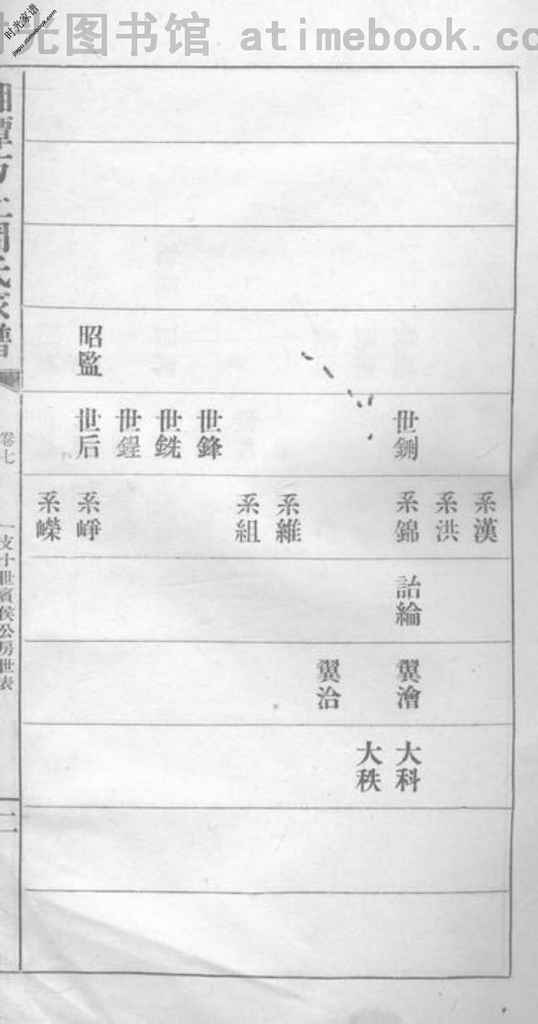 时光图书馆 atimebook.co
时光家谱
www.atimebook.com
氏家譜
卷七
一支十世賓侯公房世表
昭監
世鉶
世鋒
世銑
世鍟
世后
系漢
系洪
系錦
系維
系組
系崢
系嶸
詒綸
翼澮
翼治
大科
大秩